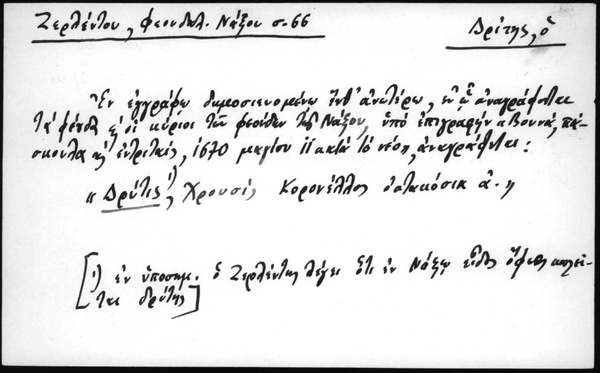 Ζερλέντου, Φεουδαλ. Νάξου σ. 66
Δρίτης, ὁ
Ἐν ἐγγράφῳ δημοσιευομένῳ ἀνωτέρω, ἐν ᾧ ἀναγράφονται
τὰ φέουδα κ' οἱ κύριοι τῶν φεούδων τῆς Νάξου, ὑπὸ ἐπιγραφὴν "Βουνά, πά-
σκουλα κ' ἐντριταίς, 1670 μαγίου 11 κατὰ τὸ νέον, ἀναγράφεται:
" Δρύτις¹⁾, Χρουσὶς Κορονέλλος ἀ. "
[¹⁾ ἐν ὑποσημ. ὁ Ζερλέντης λέγει ὅτι ἐν Νάξῳ εἶδος ὄφεως καλεῖ-
ται δρύτης]